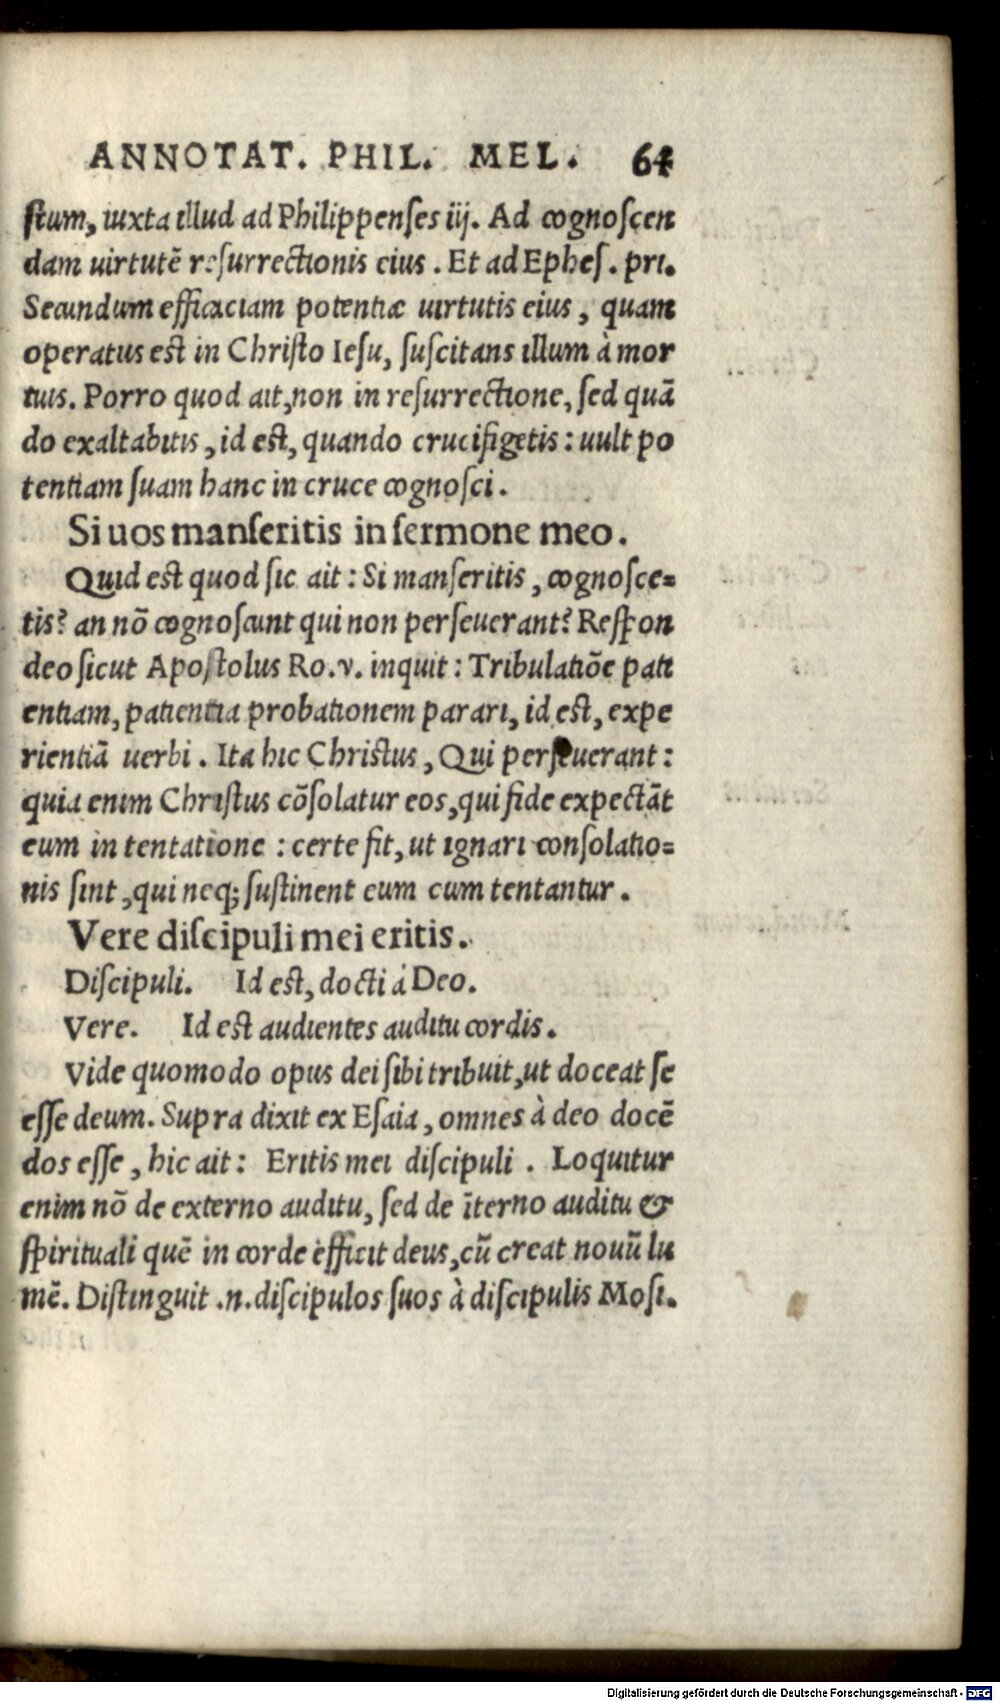 ANNOTAT. PHIL. MEL. 64
ſtum, iuxta illud ad Philippenſes iij. Ad cognoſcen
dam uirtutē reſurrectionis eius. Et ad Epheſ. pri.
Secundum efficaciam potentiæ uirtutis eius, quam
operatus est in Chriſto Ieſu, ſuſcitans illum à mor
tuis. Porro quod ait, non in reſurrectione, ſed quā
do exaltabitis, id est, quando crucifigetis: uult po
tentiam ſuam hanc in cruce cognoſci.
Si uos manſeritis in ſermone meo.
Quid est quod ſic ait: Si manſeritis, cognoſce=
tis? an nō cognoſcunt qui non perſeuerant? Reſpon
deo ſicut Apoſtolus Ro. v. inquit: Tribulatiōe pati
entiam, patientia probationem parari, id est, expe
rientiā uerbi. Ita hic Christus, Qui perſeuerant:
quia enim Chriſtus cōſolatur eos, qui fide expectāt
eum in tentatione: certe fit, ut ignari conſolatio=
nis ſint, qui neq; ſuſtinent eum cum tentantur.
Vere diſcipuli mei eritis.
Diſcipuli. Id est, docti á Deo.
Vere. Id est audientes auditu cordis.
Vide quomodo opus dei ſibi tribuit, ut doceat ſe
eſſe deum. Supra dixit ex Eſaia, omnes à deo docē
dos eſſe, hic ait: Eritis mei diſcipuli. Loquitur
enim nō de externo auditu, ſed de īterno auditu &
ſpirituali quē in corde efficit deus, cū creat nouū lu
mē. Diſtinguit .n. diſcipulos ſuos à diſcipulis Moſi.
Digitalisierung gefördert durch die Deutsche Forschungsgemeinschaft - DFG